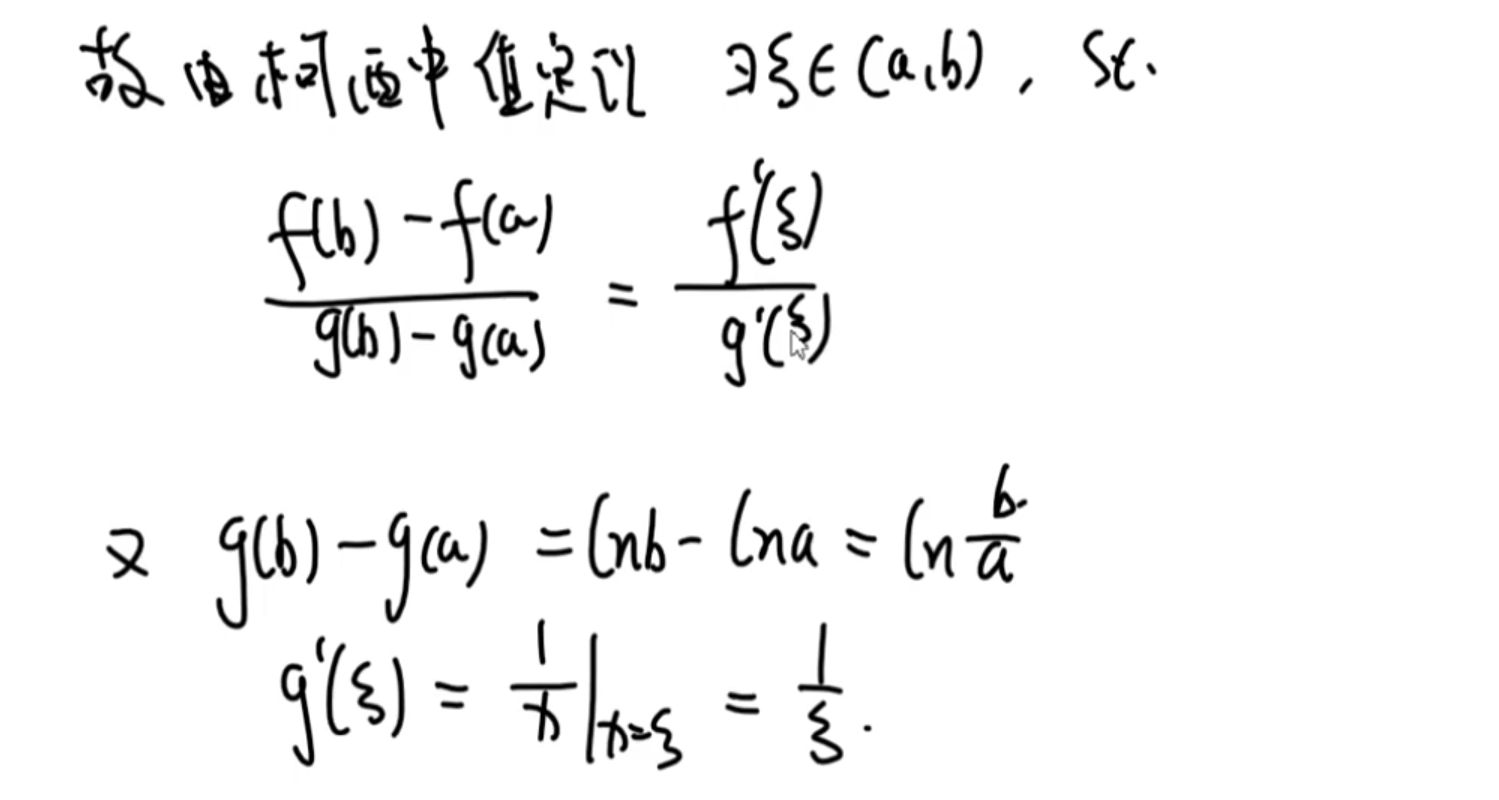 故由柯西中值定理 ∃ξ∈(a,b), st.
\frac{f(b)-f(a)}{g(b)-g(a)} = \frac{f'(ξ)}{g'(ξ)}
又 g(b)-g(a) = lnb - lna = ln\frac{b}{a}
g'(ξ) = \frac{1}{x}|_{x=ξ} = \frac{1}{ξ}.